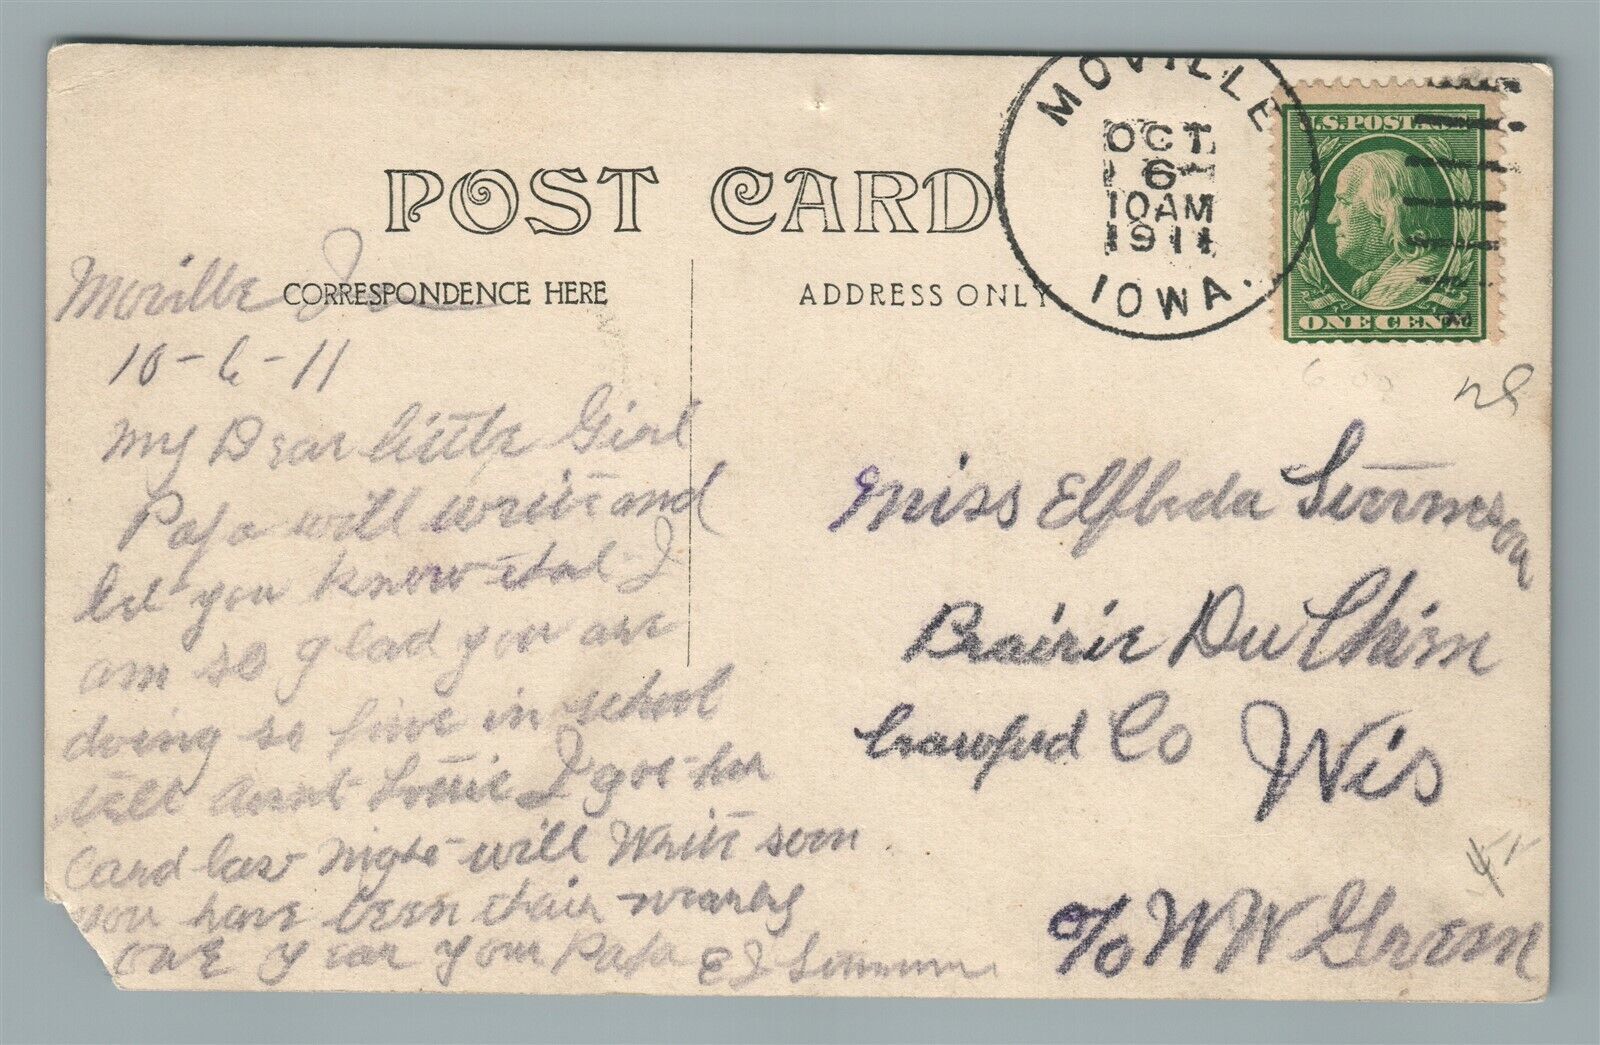 POST CARD
CORRESPONDENCE HERE
ADDRESS ONLY
MOVILLE
OCT
6
10AM
1911
IOWA.
U.S. POSTAGE
ONE CENT
Moville Ia
10-6-11
My Dear little Girl
Papa will write and
let you know that I
am so glad you are
doing so fine in school
tell Aunt Lottie I got her
Card last night will Write soon
you have been thair nearly
one year your Papa E J
Miss Elfleda Simmeson
Prairie Du Chien
Crawford Co Wis
c/o W W Green